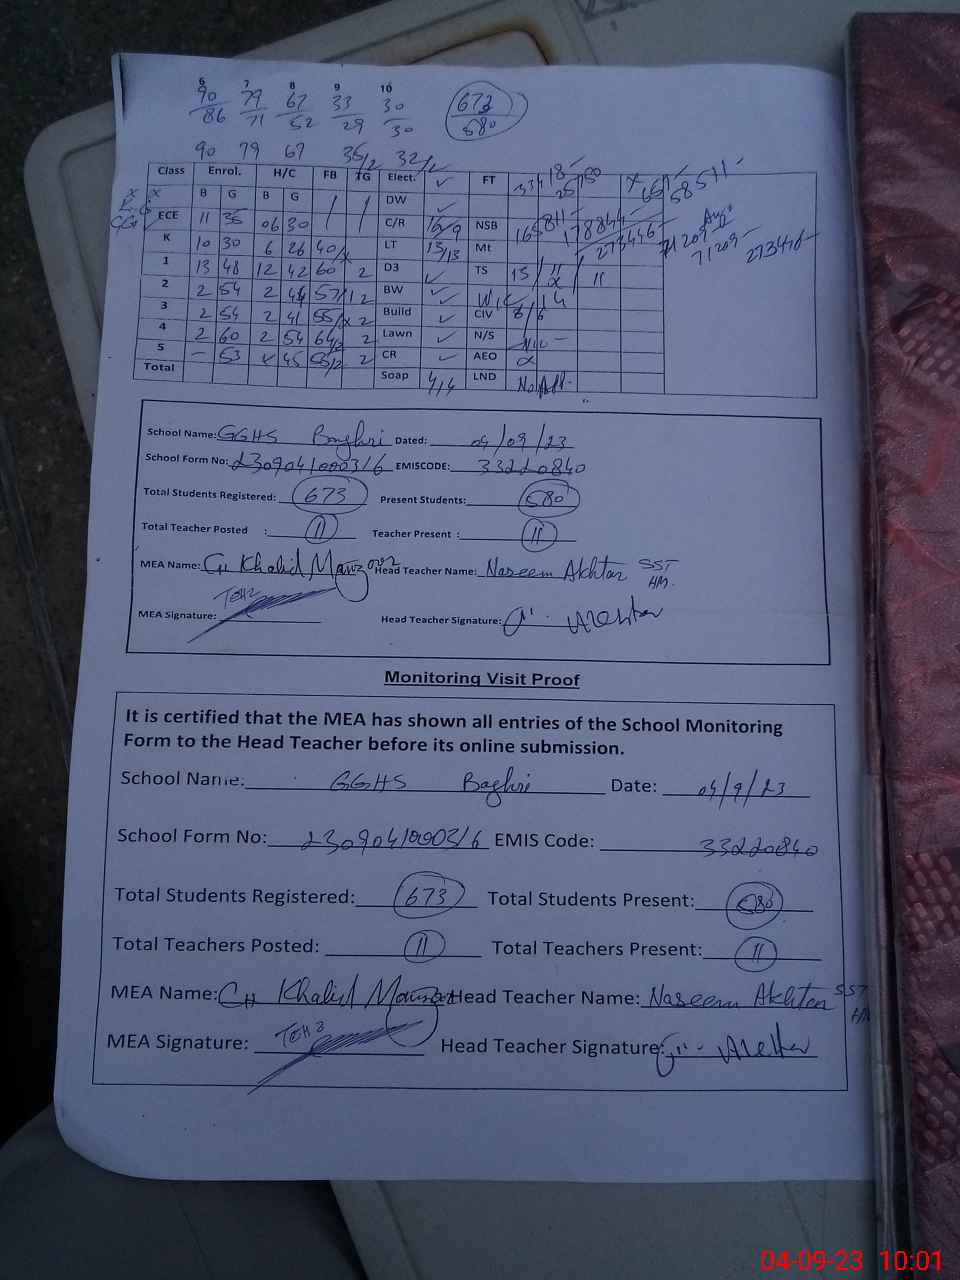 6 7 8 9 10
90 79 67 33 30
86 71 52 29 30
673
580
90 79 67 35/2 32/2
Class Enrol. H/C FB TG Elect. ✓ FT
B G B G DW ✓
ECE 11 35 06 30 C/R NSB
K 10 30 6 26 40/x LT 13/13 Mt
1 13 48 12 42 60 2 D3 ✓ TS 15 11 11
2 2 54 2 44 57/1 2 BW ✓
3 2 54 2 41 55/x 2 Build ✓ CIV 6/6
4 2 60 2 54 64/2 2 Lawn ✓ N/S Nil -
5 - 53 x 45 55/2 2 CR ✓ AEO
Total Soap 4/4 LND No All.
178844
273446
71209
273476
School Name: GGHS Baghri Dated: 04/09/23
School Form No: 2309041000316 EMISCODE: 33220840
Total Students Registered: 673 Present Students: 580
Total Teacher Posted : 11 Teacher Present : 11
MEA Name: CH Khalid Manzoor Head Teacher Name: Naseem Akhtar SST
HM.
MEA Signature: Head Teacher Signature:
Monitoring Visit Proof
It is certified that the MEA has shown all entries of the School Monitoring
Form to the Head Teacher before its online submission.
School Name: GGHS Baghri Date: 04/9/23
School Form No: 2309041000316 EMIS Code: 33220840
Total Students Registered: 673 Total Students Present: 580
Total Teachers Posted: 11 Total Teachers Present: 11
MEA Name: CH Khalid Manzoor Head Teacher Name: Naseem Akhtar SST
HM
MEA Signature: Head Teacher Signature:
04-09-23 10:01